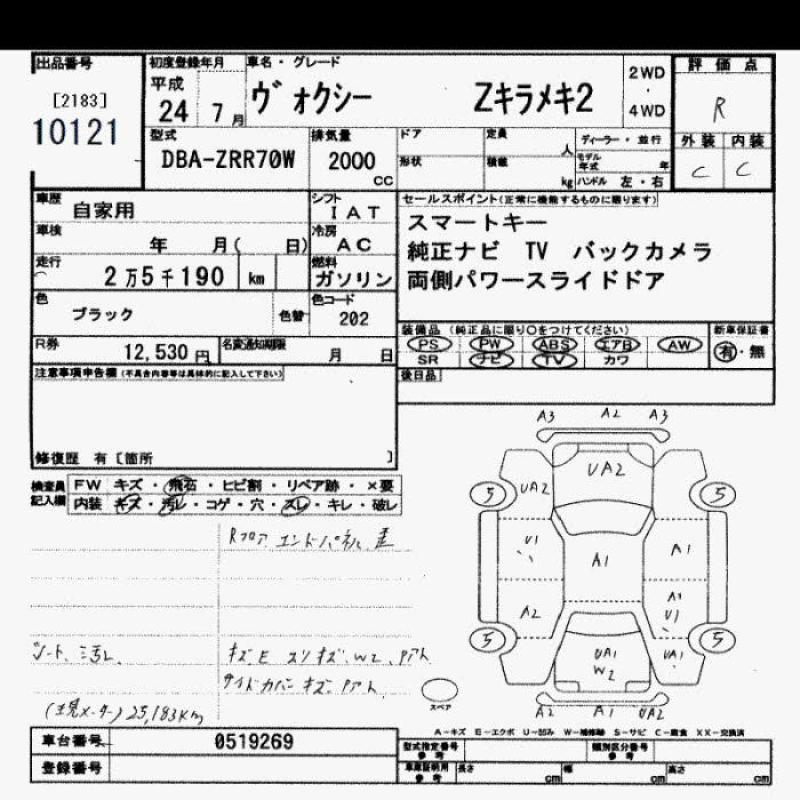 出品番号 初度登録年月 車名・グレード 評価点
[2183] 平成 ヴォクシー Zキラメキ2 2WD
・
10121 24 7月 4WD R
型式 排気量 ドア 定員 人 ディーラー・並行 外装 内装
DBA-ZRR70W 2000 cc 形状 積載 kg モデル年式 年 C C
ハンドル 左・右
車歴 自家用 シフト IAT セールスポイント(正常に機能するものに限ります)
車検 年 月( 日) 冷房 AC スマートキー
走行 2万5千190 km 燃料 ガソリン 純正ナビ TV バックカメラ
両側パワースライドドア
色 ブラック 色替 色コード 202
装備品 (純正品に限り〇をつけてください) 新車保証書
R券 12,530円 名変通知期限 月 日 PS PW ABS エアB AW 有・無
SR ナビ TV カワ
注意事項申告欄(不具合内容等は具体的に記入して下さい) 後日品
修復歴 有 [箇所 ]
検査員記入欄 FW キズ・飛石・ヒビ割・リペア跡・×要
内装 キズ・汚レ・コゲ・穴・スレ・キレ・破レ
A3 A2 A3
UA2
5 UA2 5
Rフロア エンドパネル
U1 A1 A1
A2 A1 U1
5 5
シート 汚レ キズE スリキズ、W2、アト
UA1 W2 UA1
サイドカバー キズ アト
スペア
A2 A1 UA2
(現メーター) 25,183km
A-キズ E-エクボ U-凹み W-補修跡 S-サビ C-腐食 XX-交換済
車台番号 0519269 型式指定番号 参考 類別区分番号 参考
登録番号 車庫証明用 参考 長さ cm 幅 cm 高さ cm